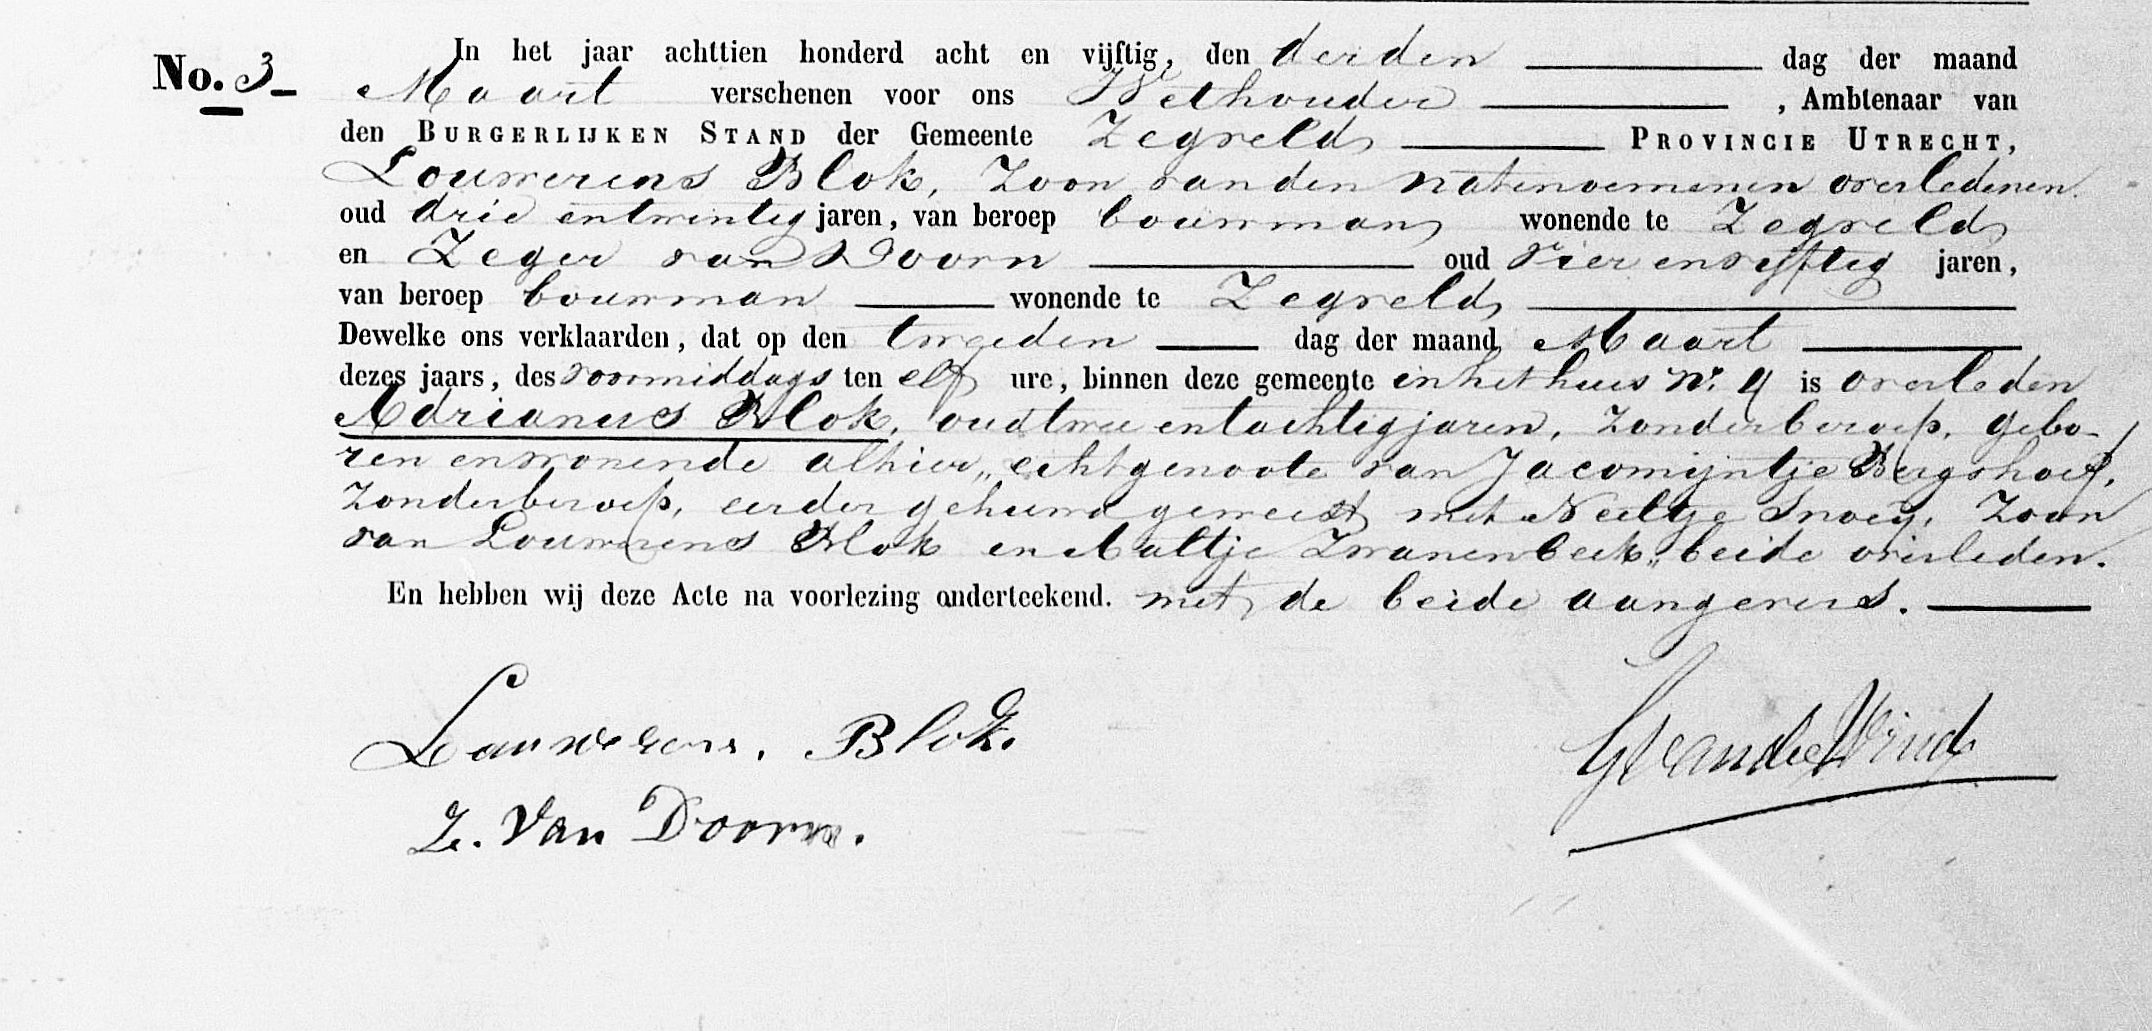 No. 3
In het jaar achttien honderd acht en vijftig, den derden dag der maand
Maart verschenen voor ons Wethouder, Ambtenaar van
den BURGERLIJKEN STAND der Gemeente Zegveld PROVINCIE UTRECHT,
Louwerens Blok, Zoon van den natenoemenen overledenen
oud drie en twintig jaren, van beroep bouwman wonende te Zegveld
en Zeger van Doorn oud vier en vijftig jaren,
van beroep bouwman wonende te Zegveld
Dewelke ons verklaarden, dat op den tweeden dag der maand Maart
dezes jaars, des voormiddags ten elf ure, binnen deze gemeente in het huis No. 4 is overleden
Adrianus Blok, oud twee en tachtig jaren, zonder beroep, gebo-
ren en wonende alhier, echtgenoote van Jacomijntje Bergshoef,
zonder beroep, eerder gehuwd geweest met Neeltje Snoey, Zoon
van Louwerens Blok en Aaltje Zwanenbeek, beide overleden.
En hebben wij deze Acte na voorlezing onderteekend. met de beide aangevers.
Lauwerens. Blok.
Z. Van Doorn.